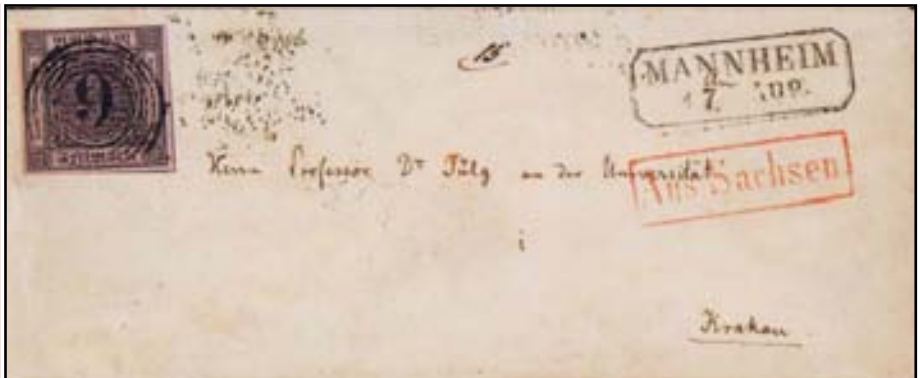 9
15
MANNHEIM
17 AUG.
Aus Sachsen
Herrn Professor Dr Jülg an der Universität
i
Krakau